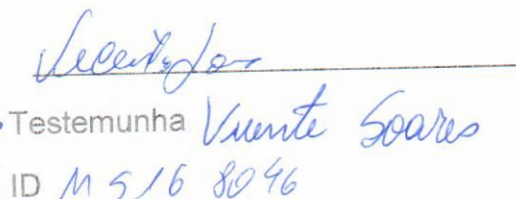 Testemunha Vicente Soares
ID M 5 16 8046